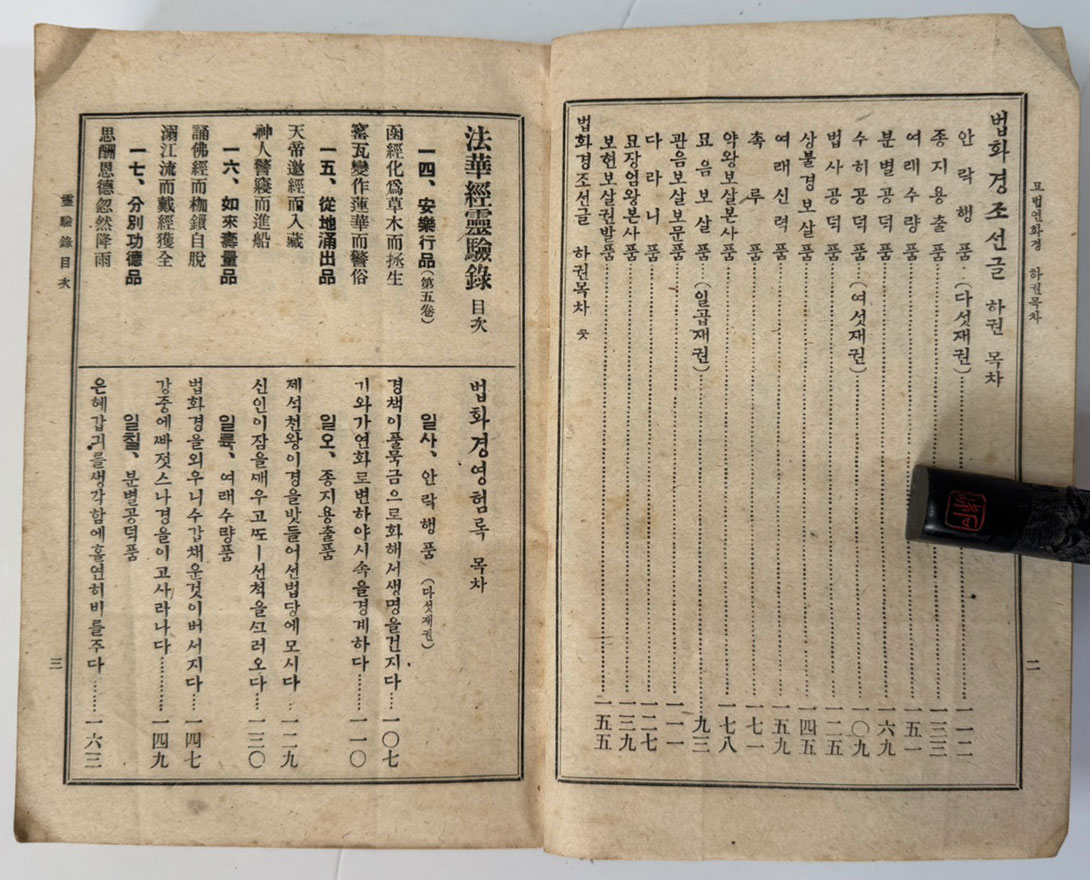 묘법연화경 하권목차
법화경조선글 하권 목차
안락행품(다섯재권)……一一二
종지용출품……一三三
여래수량품……一五一
분별공덕품……一六九
수희공덕품(여섯재권)……一〇九
법사공덕품……一二五
상불경보살품……一四五
여래신력품……一五九
촉루품……一七一
약왕보살본사품……一七八
묘음보살품(일곱재권)……九三
관음보살보문품……一一一
다라니품……一二七
묘장엄왕본사품……一三九
보현보살권발품……一五五
법화경조선글 하권목차 끗
二
法華經靈驗錄 目次
一四、安樂行品(第五卷)
函經化爲草木而拯生
窰瓦變作蓮華而警俗
一五、從地涌出品
天帝邀經而入藏
神人警寢而進船
一六、如來壽量品
誦佛經而枷鎖自脫
溺江流而戴經獲全
一七、分別功德品
思酬恩德忽然降雨
법화경영험록 목차
일사、안락행품 (다섯재권)
경책이풀묵금으로화해서생명을건지다……一〇七
기와가연화로변하야시속을경계하다……一一〇
일오、종지용출품
제석천왕이경을밧들어선법당에모시다……一二九
신인이잠을깨우고또ㅣ선척을ᄭᅳ러오다……一三〇
일륙、여래수량품
법화경을외우니수갑채운것이버서지다……一四七
강중에ᄲᅡ젓스나경을이고사라나다……一四九
일칠、분별공덕품
은혜갑기를생각함에홀연히비를주다……一六三
靈驗錄目次
三